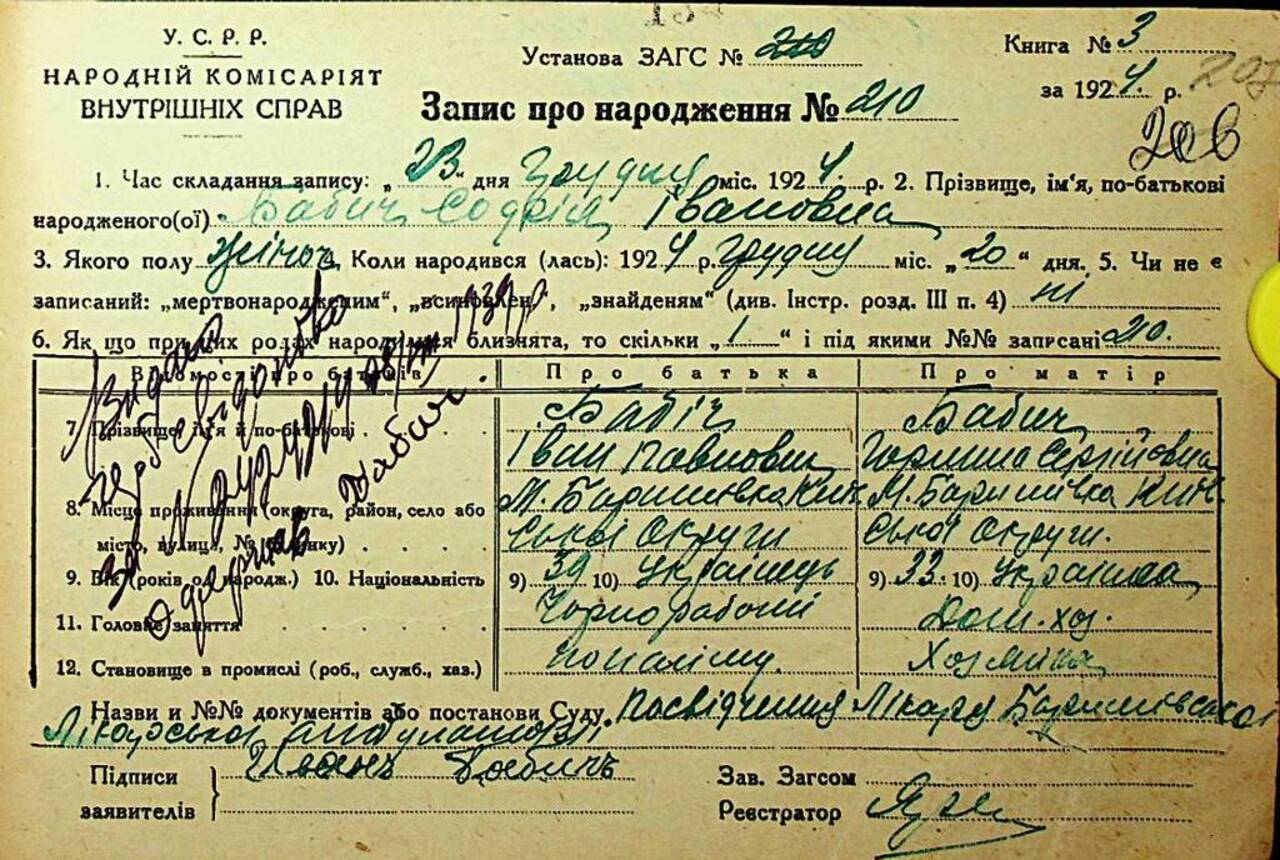 У. С. Р. Р.
НАРОДНІЙ КОМІСАРІЯТ
ВНУТРІШНІХ СПРАВ
Установа ЗАГС № 210
Книга № 3
за 1924 р.
207
206
Запис про народження № 210
1. Час складання запису: „23“ дня грудня міс. 1924 р. 2. Прізвище, ім'я, по-батькові
народженого(ої) Бабич Софія Івановна
3. Якого полу жіноч. Коли народився (лась): 1924 р. грудня міс. „20“ дня. 5. Чи не є
записаний: „мертвонародженим“, „всиновлен“, „знайденям“ (див. Інстр. розд. III п. 4) ні
6. Як що при цих родах народилися близнята, то скільки „1“ і під якими №№ записані 210.
Відомості про батьків. Про батька Про матір
7. Прізвище, ім'я й по-батькові Бабіч Бабич
Іван Павлович Сергійовна
8. Місце проживання (округа, район, село або М. Баришівка Київ М. Баришівка Київ
місто, вулиця, № будинку) ської Округи ської Округи.
9. Вік (років од народж.) 10. Національність 9) 39 10) Українець 9) 33. 10) Українка
11. Головне заняття Чорнорабочий Дом. хоз.
12. Становище в промислі (роб., служб., хаз.) Хозяйка
Назви и №№ документів або постанови Суду. Посвідчення Лікаря Баришівської
Лікарської амбулаторії.
Підписи
заявителів
Иванъ Бабичъ
Зав. Загсом
Реєстратор
Видано
1939 р.
одержав
Бабич